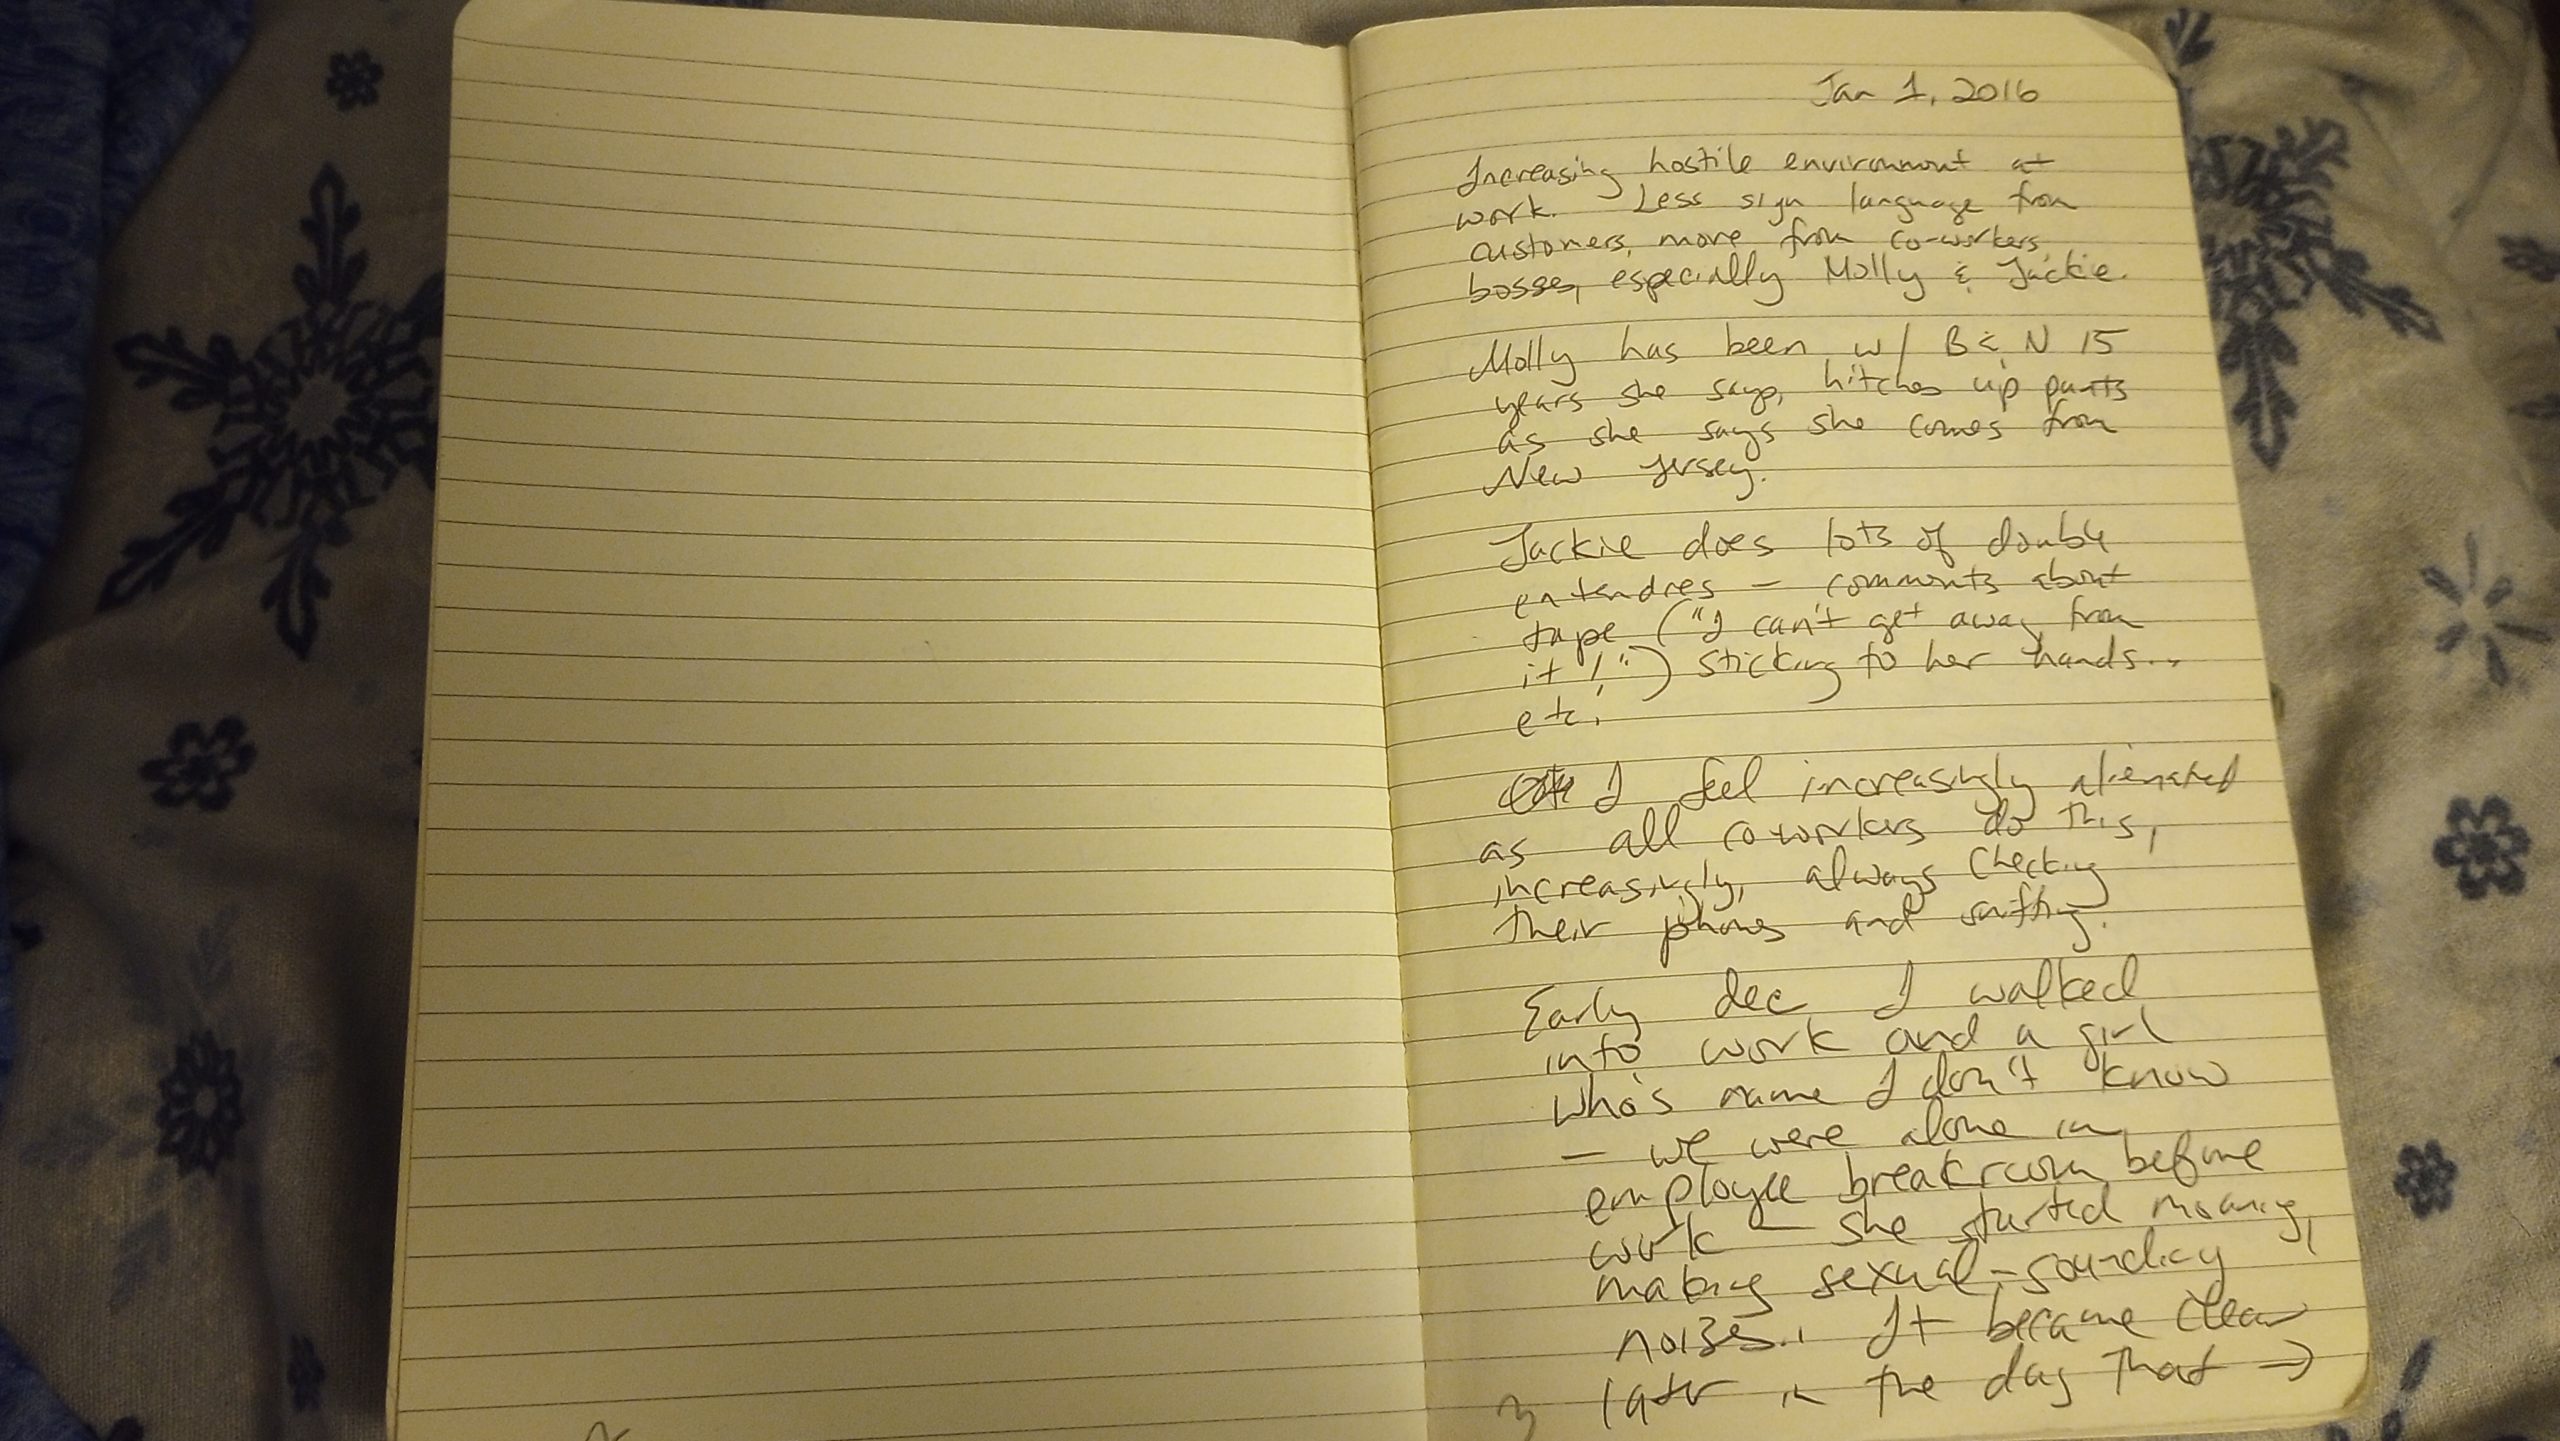 Jan 1, 2016
Increasing hostile environment at
work. Less sign language from
customers, more from co-workers,
bosses, especially Molly & Jackie.
Molly has been w/ B & N 15
years she says, hitches up pants
as she says she comes from
New Jersey.
Jackie does lots of double
entendres – comments about
tape ("I can't get away from
it!") sticking to her hands...
etc.
I feel increasingly alienated
as all co-workers do this,
increasingly, always checking
their phones and
Early dec I walked
into work and a girl
who's name I don't know
– we were alone in
employee breakroom before
work – she started moaning,
making sexual-sounding
noises. It became clear
later in the day that →
3